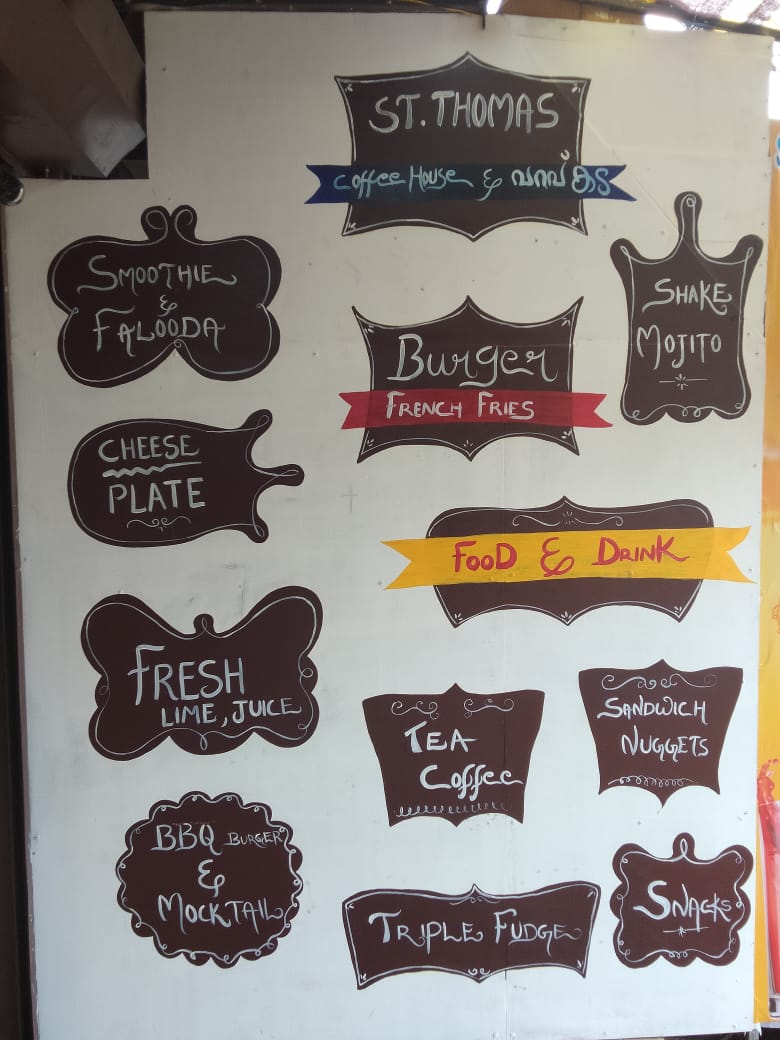 ST. THOMAS
Coffee House & വറവ് കട
SMOOTHIE
&
FALOODA
SHAKE
MOJITO
Burger
FRENCH FRIES
CHEESE
PLATE
FOOD & DRINK
FRESH
LIME, JUICE
TEA
Coffee
SANDWICH
NUGGETS
BBQ BURGER
&
MOCKTAIL
TRIPLE FUDGE
SNACKS